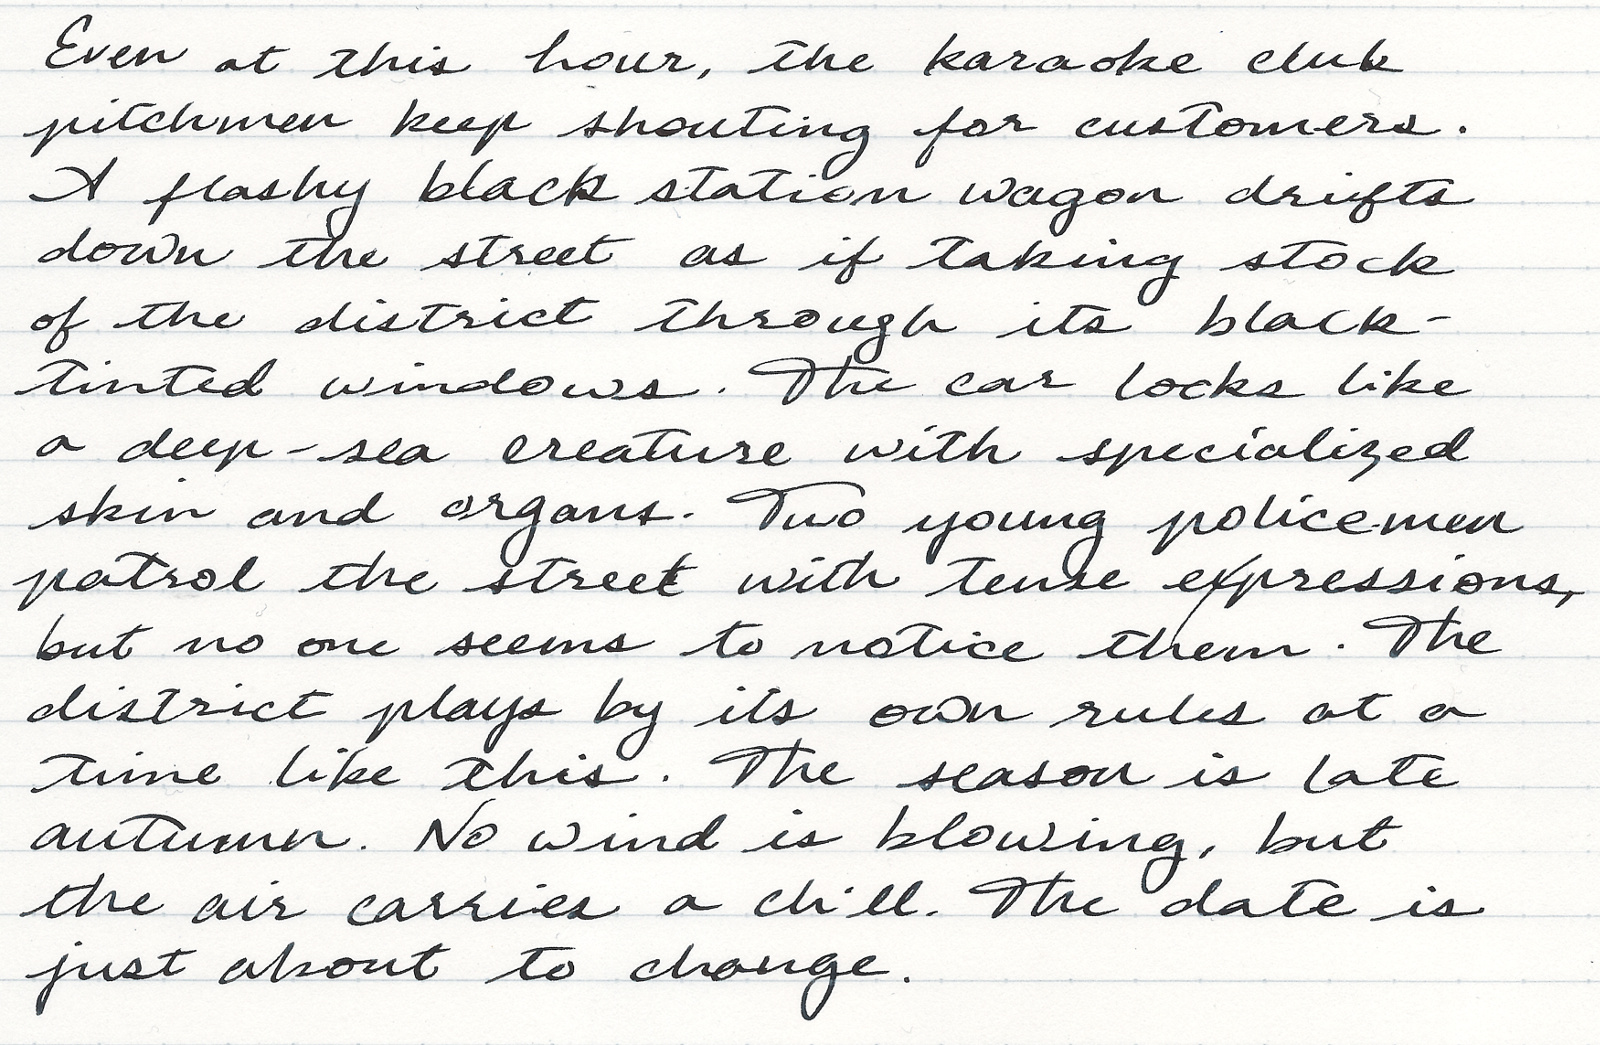 Even at this hour, the karaoke club
pitchmen keep shouting for customers.
A flashy black station wagon drifts
down the street as if taking stock
of the district through its black-
tinted windows. The car looks like
a deep-sea creature with specialized
skin and organs. Two young policemen
patrol the street with tense expressions,
but no one seems to notice them. The
district plays by its own rules at a
time like this. The season is late
autumn. No wind is blowing, but
the air carries a chill. The date is
just about to change.